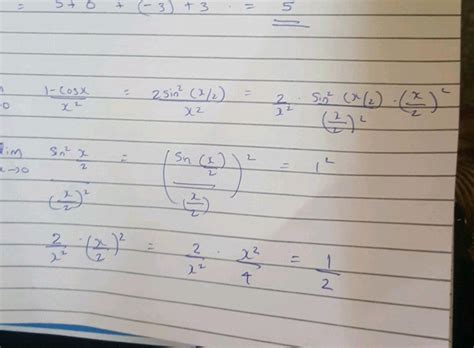 = 5+0 + (-3) + 3 = 5
1-cosx/x² = 2sin²(x/2)/x² = 2/x² · sin²(x/2)/(x/2)² · (x/2)²
lim x→0 sin² x/2 / (x/2)² = (sin(x/2)/(x/2))² = 1²
2/x² · (x/2)² = 2/x² · x²/4 = 1/2